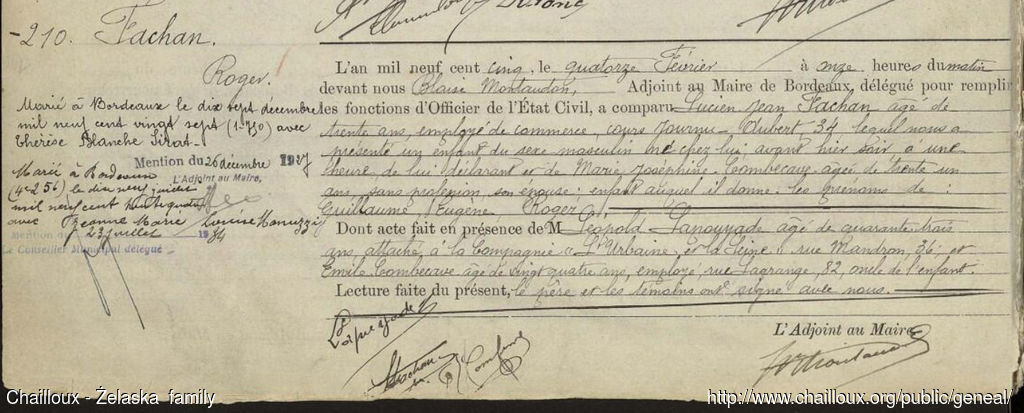 -210. Fachan.
Roger.
Marié à Bordeaux le dix sept décembre
mil neuf cent vingt sept (1-790) avec
Thérèse Blanche Sirat.
Mention du 26 décembre 1927
L'Adjoint au Maire,
Marié à Bordeaux
le dix neuf juillet
mil neuf cent trente quatre
avec Jeanne Marie Louise
mention du 23 juillet 1934
Le Conseiller Municipal délégué
L'an mil neuf cent cinq, le quatorze Février à onze heures du matin
devant nous Blaise Montaudon, Adjoint au Maire de Bordeaux, délégué pour remplir
les fonctions d'Officier de l'État Civil, a comparu Lucien Jean Fachan âgé de
trente ans, employé de commerce, cours Journu-Aubert, 34 lequel nous a
présenté un enfant du sexe masculin né chez lui, avant hier soir à une
heure, de lui déclarant et de Marie Joséphine Combecave âgée de trente un
ans, sans profession, son épouse; enfant auquel il donne les prénoms de:
Guillaume, Eugène, Roger
Dont acte fait en présence de M Léopold Lanouyade âgé de quarante trois
ans, attaché à la Compagnie "L'Urbaine et la Seine" rue Mandron, 36; et
Emile Combecave âgé de vingt quatre ans, employé rue Lagrange, 82, oncle de l'enfant.
Lecture faite du présent, le père et les témoins ont signé avec nous.
L'Adjoint au Maire
Chailloux - Żelaska family
http://www.chailloux.org/public/geneal/